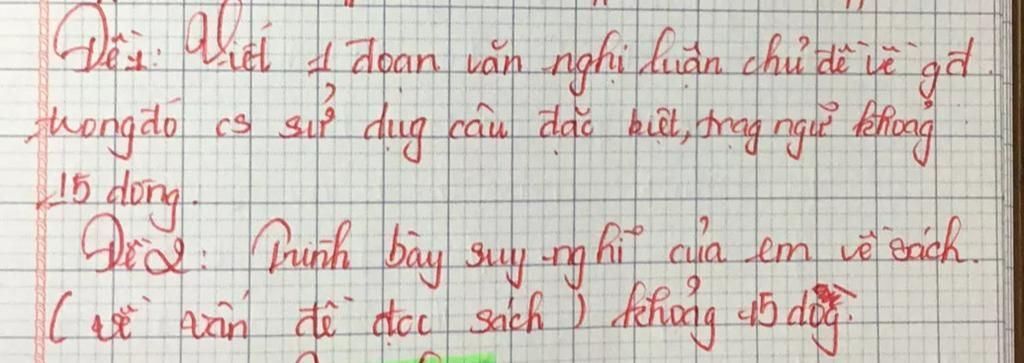 Đề1: Viết 1 đoạn văn nghị luận chủ đề về gđ.
trong đó cs sử dụg câu đặc biệt, trạg ngữ khoảg
15 dòng.
Đề2: Trình bày suy nghĩ của em về sách.
(về vấn đề đọc sách) khoảg 15 dòg.